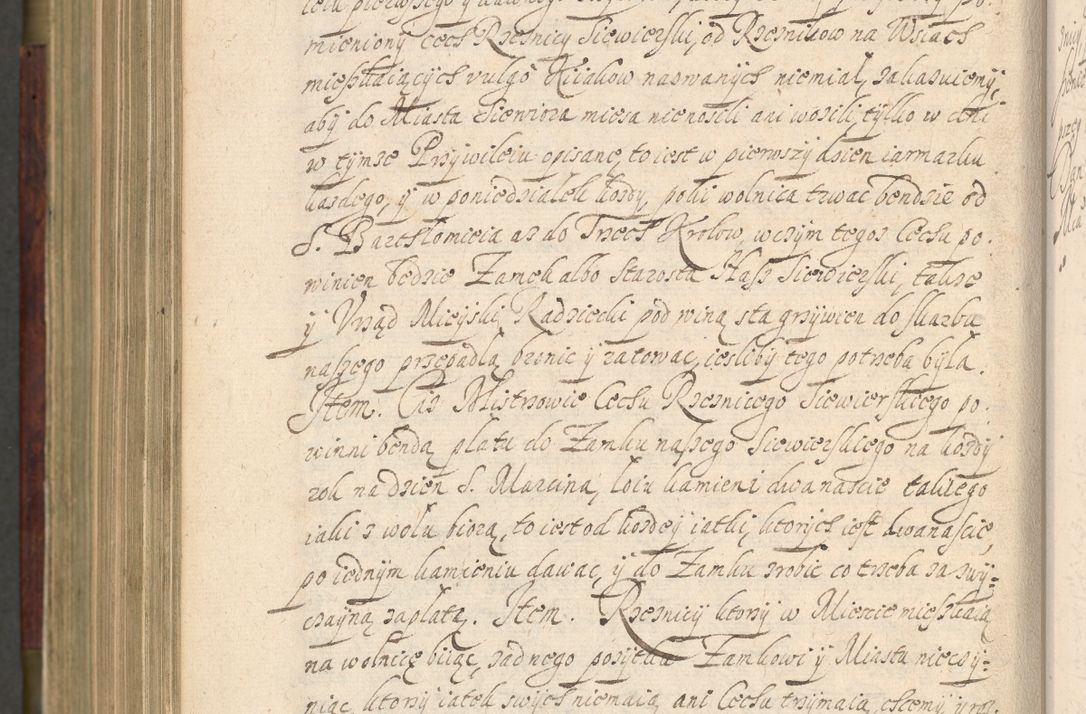 mieniony cech Rzeznicy Siewierski, od Rzeznikow na Wsiach
mieszkaiących vulgo Kiiakow nazwanych niemiał, zakazuiemy,
aby do Miasta Siewiora miesa nienosili ani wozili, tylko w dni
w tymze Przywileiu opisane, to iest w pierwszy dzien iarmarku
kazdego, y w poniedzialek kozdy, poki wolnica trwac bendzie od
S. Barthłomieia az do Trzech Krolow, wczym tegoz Cechu po:
winien będzie Zamek albo Starosta Nasz Siewierski, takze
y Vrząd Mieyski, Radziecki pod winą sta grzywien do skarbu
naszego przepadlą bronic y ratowac, iesliby tego potrzeba była.
Item. Ciz Mistrzowie Cechu Rzeznicego Siewierskiego po:
winni bendą płatu do Zamku naszego Siewierskiego na kozdy
rok na dzien S. Marcina, łoiu kamieni dwanascie takiego
iaki z wołu biorą, to iest od kozdey iatki, ktorych iest dwanascie,
po iednym kamieniu dawac, y do Zamku zrobic co trzeba za zwy=
czayną zapłatą. Item. Rzeznicy ktorzy w Miescie mieszkaią
na wolnicę biiąc, zadnego pozytku Zamkowi y Miastu nieczy=
niąc, ktorzy iatek swych niemaią, ani Cechu trzymaią, chcemy y roz